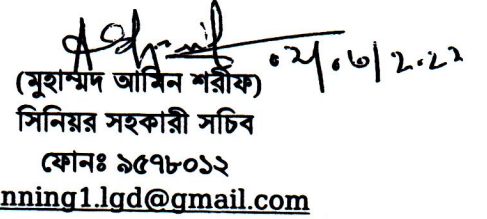 (মুহাম্মদ আমিন শরীফ)
সিনিয়র সহকারী সচিব
ফোনঃ ৯৫৭৮০১২
nning1.lgd@gmail.com